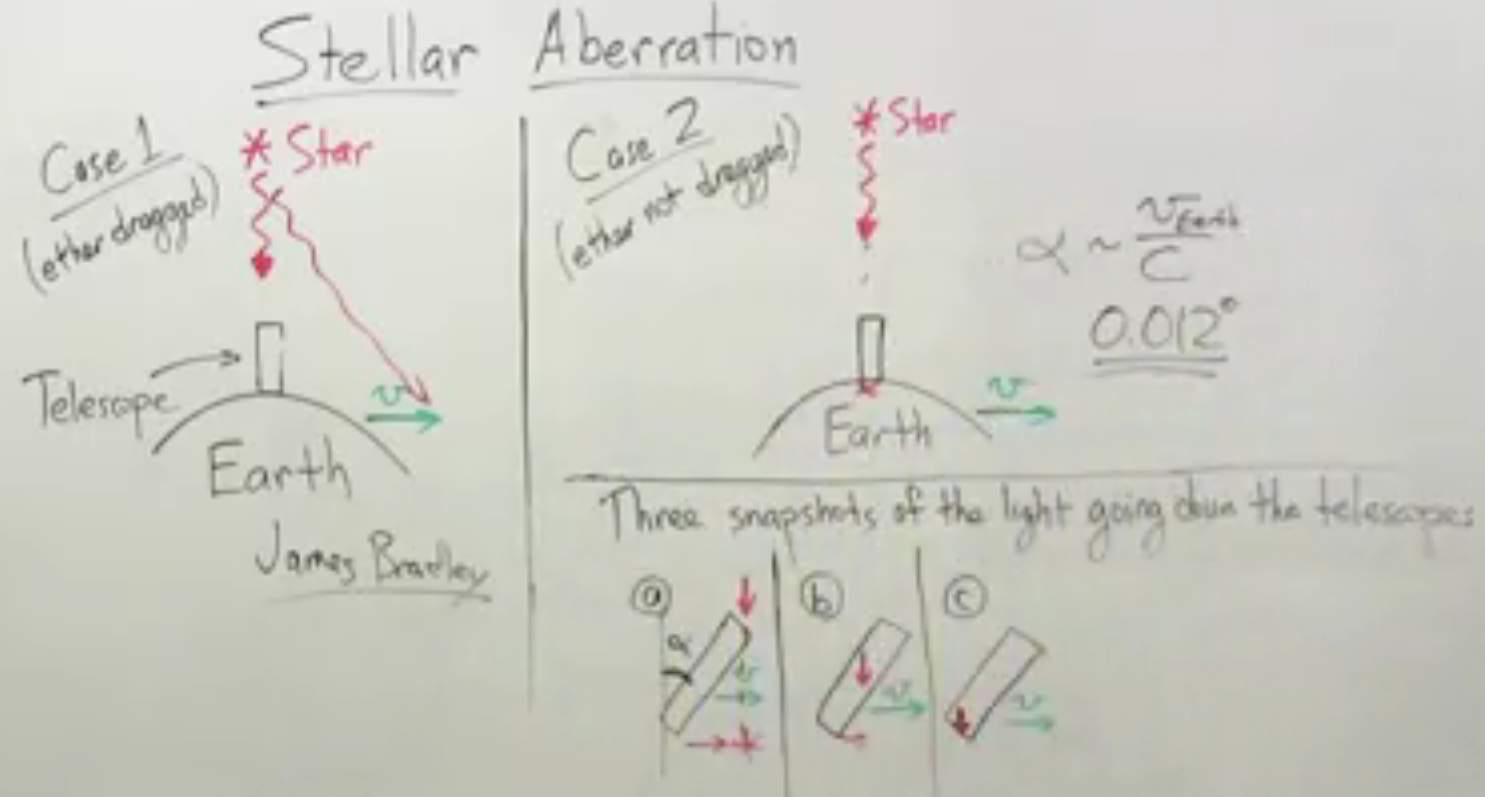 Stellar Aberration
Case 1
(ether dragged)
* Star
Telescope
v
Earth
James Bradley
Case 2
(ether not dragged)
* Star
v
Earth
α ~ v Earth / C
0.012°
Three snapshots of the light going down the telescope:
a
α
v
b
v
c
v